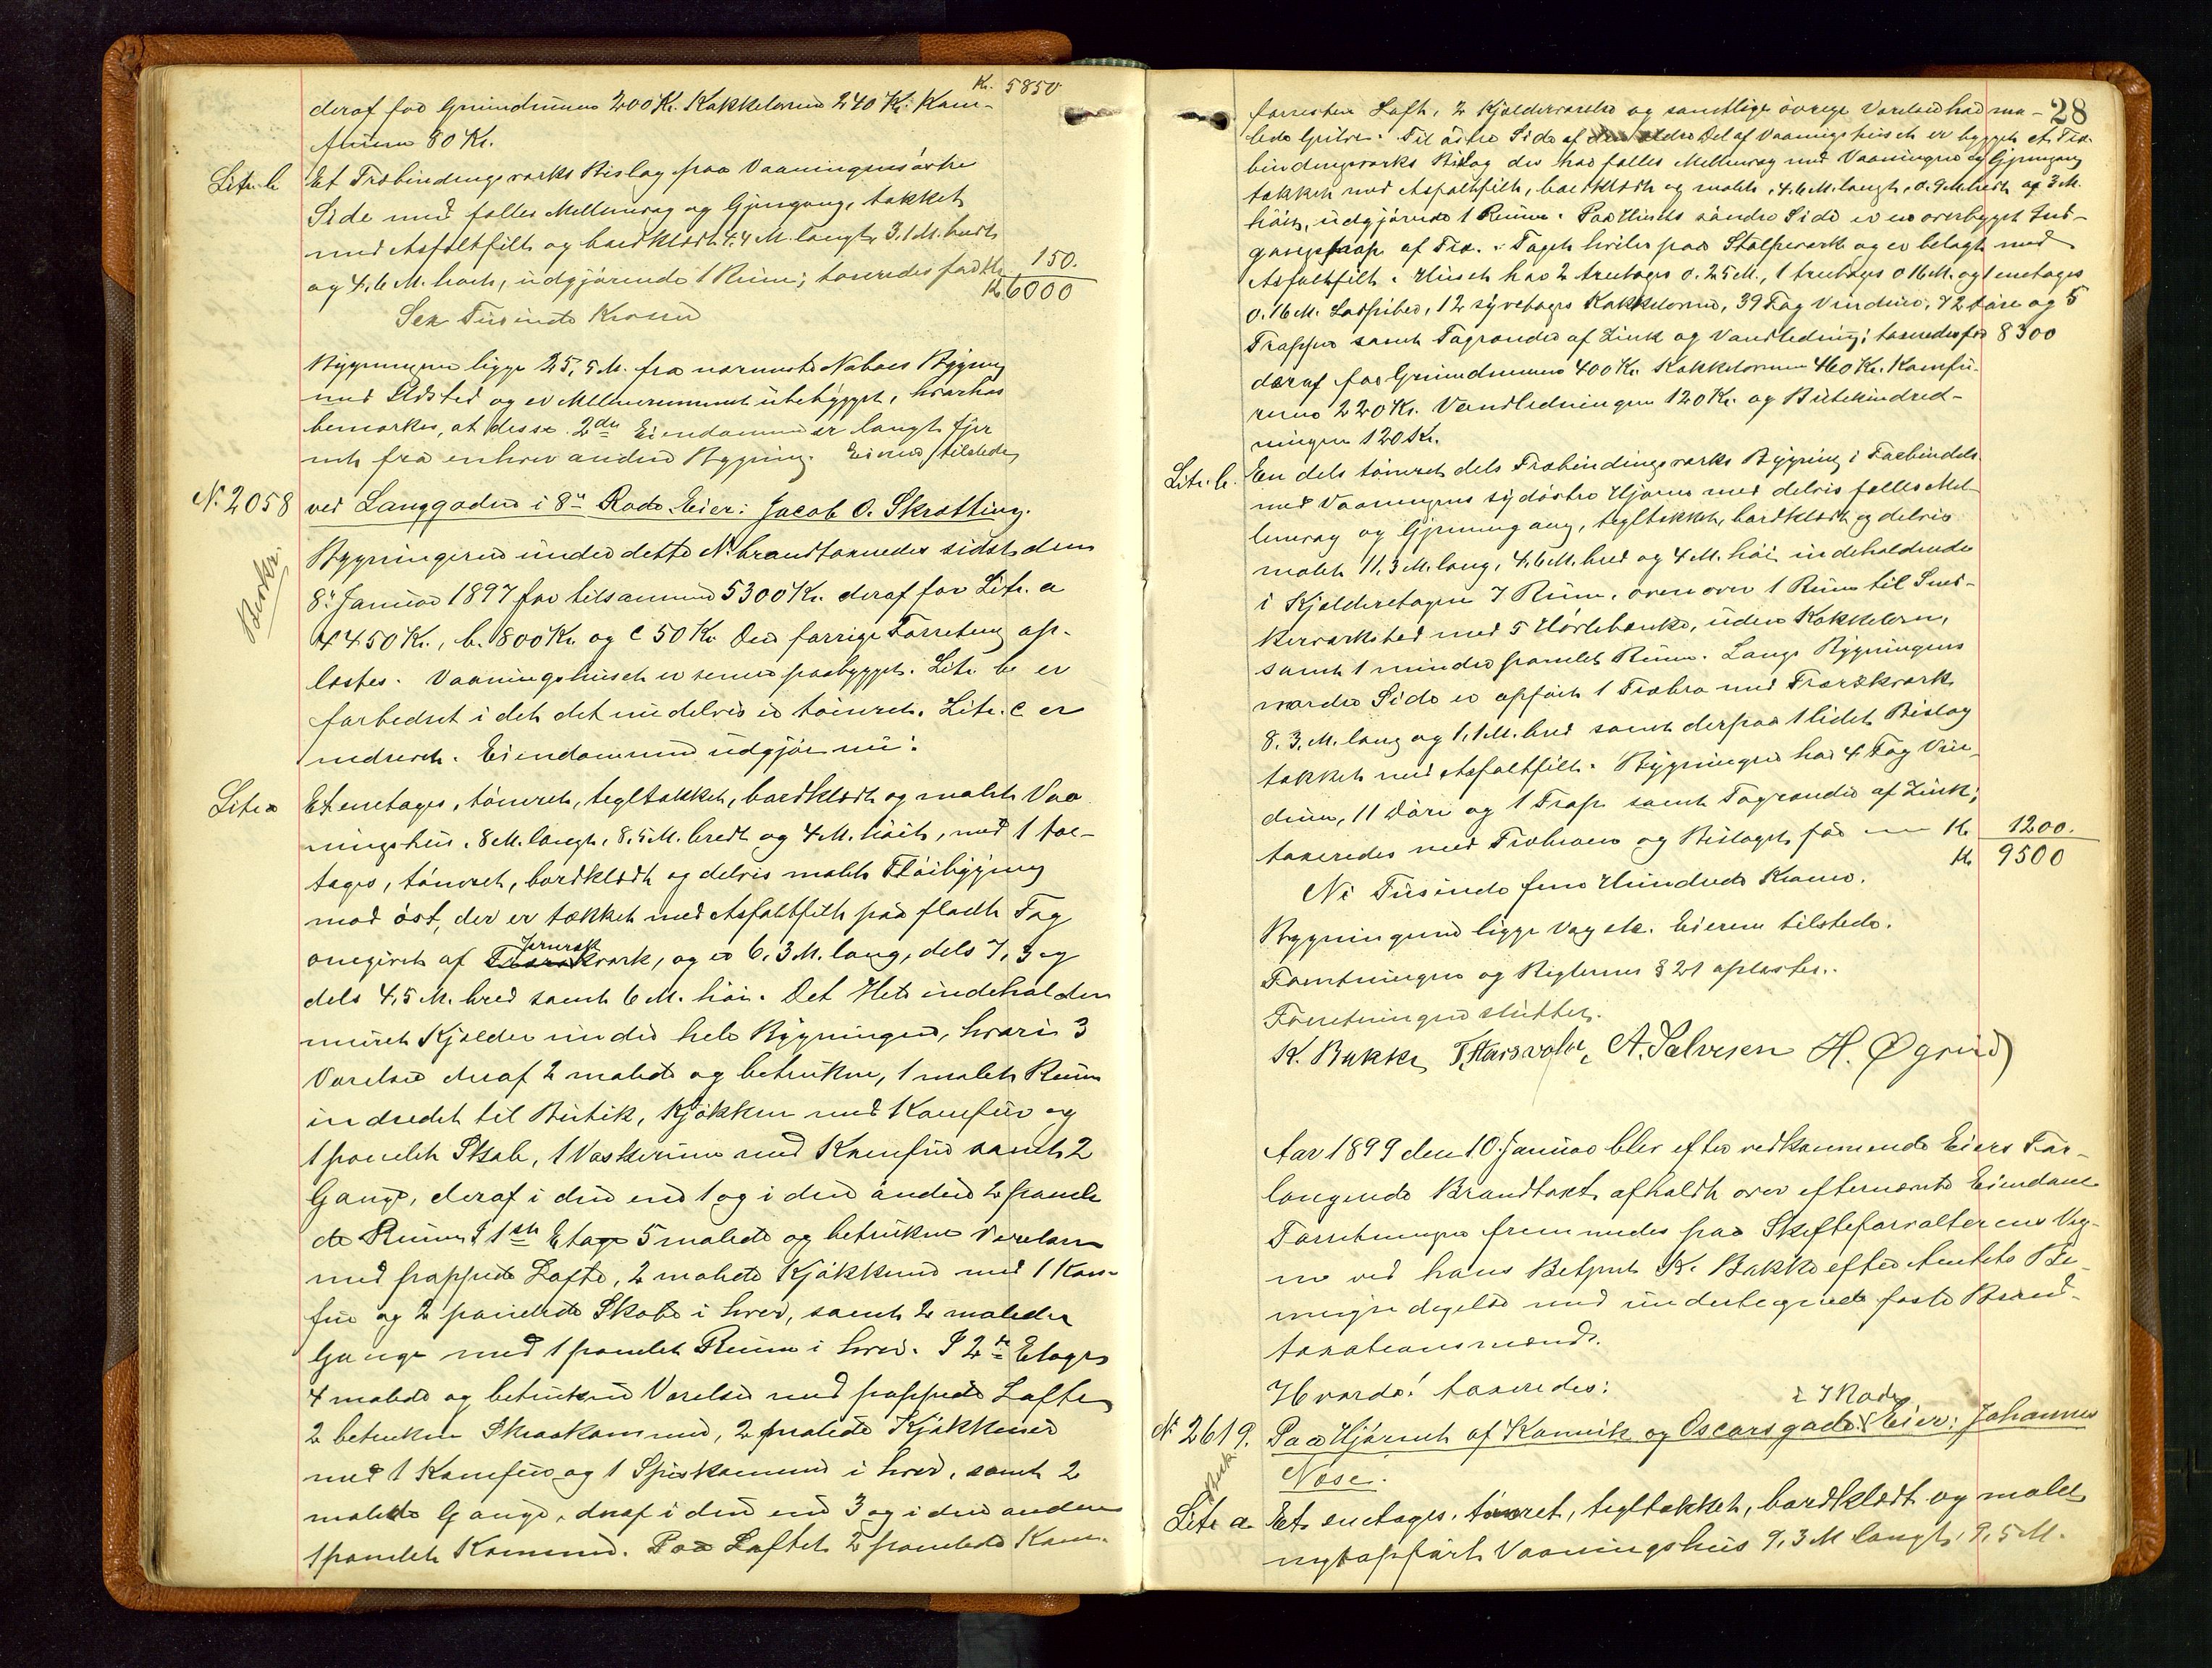 Kr. 5850
deraf for Grundmuren 200 Kr. Kakkelovne 240 Kr. Kom-
furene 80 Kr.
Litr. b Et Træbindingsværks Bislag paa Vaaningens østre
Side med fælles Mellemvæg og Gjengang, tækket
med Asfaltfilt og bordklædt 4,4 M. langt, 3,1 M. bredt
og 4,6 M. høit, udgjørende 1 Rum; taxeredes for Kr. 150.
Kr. 6000
Sex Tusinde Kroner
Bygningerne ligge 25,5 M. fra nærmeste Naboes Bygning
med Ildsted og er Mellemrummet ubebygget, hvorhos
bemærkes, at disse 2de Eiendomme er langt fjer
net fra enhver anden Bygning. Eieren tilstede
No. 2058 ved Langgaden i 8de Rode. Eier: Jacob O. Skrætting.
Beskr.
Bygningerne under dette No. brandtaxeredes sidst den
8de Januar 1897 for tilsammen 5300 Kr. deraf for Litr. a
4450 Kr., b. 800 Kr. og c 50 Kr. Den forrige Forretning op-
læstes. Vaaningshuset er senere paabygget. Litr. b er
forbedret i det det nu delvis er tømret. Litr. c er
nedrevet. Eiendommen udgjør nu:
Litr. a Et enetages, tømret, tegltækket, bordklædt og malet Vaa
ningshus, 8 M. langt, 8,5 M. bredt og 4 M. høit, med 1 toe-
tages, tømret, bordklædt og delvis malet Fløibygning
mod øst, der er tækket med Asfaltfilt paa fladt Tag
Jernræk
omgivet af Trærækværk, og er 6,3 M. lang, dels 7,3 og
dels 4,5 M. bred samt 6 M. høi. Det Hele indeholder
muret Kjelder under hele Bygningen, hvori 3
Værelser deraf 2 malede og betrukne, 1 malet Rum
indredet til Butik, Kjøkken med Komfur og
1 panelet Skab, 1 Vaskerum med Komfur samt 2
Gange, deraf i den ene 1 og i den anden 2 panele
de Rum. I 1ste Etage 5 malede og betrukne Værelser
med pappede Lofte, 2 malede Kjøkkener med 1 Kom-
fur og 2 panelede Skabe i hver, samt 2 malede
Gange med 1 panelet Rum i hver. I 2de Etage
4 malede og betrukne Værelser med pappede Lofte,
2 betrukne Skraakammer, 2 malede Kjøkkener
med 1 Komfur og 1 Spiskammer i hver, samt 2
malede Gange, deraf i den ene 3 og i den anden
1 panelet Kammer. Paa Loftet 2 panelede Kam-
28
forresten Loft, 2 Kjelderværelser og samtlige øvrige Værelser har ma-
lede Gulve. Til østre Side af den ældre Del af Vaaningshuset er bygget et Træ-
bindingsværks Bislag der har fælles Mellemvæg med Vaaningen og Gjengang
tækket med Asfaltfilt, bordklædt og malet, 4,6 M. langt, 0,9 M. bredt og 3 M.
høit, udgjørende 1 Rum. Paa Husets søndre Side er en overbygget Ind-
gangstrap af Træ. Taget hviler paa Stolpeværk og er belagt med
Asfaltfilt. Huset har 2 treetages 0,25 M., 1 treetages 0,16 M. og 1 enetages
0,16 M. Løbpiber, 12 syvetages Kakkelovne, 39 Fag Vinduer, 42 Døre og 5
Trapper samt Tagrender af Zink og Vandledning; taxeredes for 8300
deraf for Grundmuren 400 Kr. Kakkelovnene 460 Kr. Komfu-
rene 220 Kr. Vandledningen 120 Kr. og Butikindred-
ningen 120 Kr.
Litr. b. En dels tømret dels Træbindingsværks Bygning i Forbindelse
med Vaaningens sydøstre Hjørne med delvis fælles Mel-
lemvæg og Gjennemgang, tegltækket, bordklædt og delvis
malet 11,3 M. lang, 4,6 M. bred og 4 M. høi, indeholdende
i Kjelderetagen 7 Rum, ovenover 1 Rum til Sned-
kerværksted med 5 Høvlebænke, uden Kakkelovn,
samt 1 mindre panelet Rum. Langs Bygningens
nordre Side er opført 1 Træbro med Trærækværk
8,3 M. lang og 1,1 M. bred samt derpaa 1 lidet Bislag
tækket med Asfaltfilt. Bygningen har 4 Fag Vin-
duer, 11 Døre og 1 Trap samt Tagrender af Zink;
taxeredes med Træbroen og Bislaget for Kr. 1200.
Kr. 9500
Ni Tusinde fem Hundrede Kroner.
Bygningerne ligge Væg etc. Eieren tilstede.
Forretningen og Reglernes § 21 oplæstes.
Forretningen sluttet.
K. Bakke, T. Haarsvolle, A. Salvesen H. Øgreid
Aar 1899 den 10. Januar blev efter vedkommende Eiers For-
langende Brandtaxt afholdt over efternævnte Eiendom
Forretningen fremmedes paa Skifteforvalterens Veg-
ne ved hans Betjent K. Bakke efter Amtets Be-
myndigelse med undertegnede faste Brand-
taxationsmænd.
Hvorda! taxeredes:
i 7 Rode
No. 2619. Paa Hjørnet af Kannik og Oscarsgade. Eier: Johannes
Næse.
Besk.
Litr a. Et enetages, tømret, tegltækket, bordklædt og malet
nyopført Vaaningshus 9,3 M langt, 9,5 M.